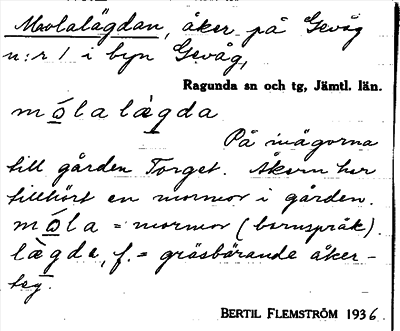 Molalägdan, åker på Gevåg
n:r 1 i byn Gevåg,
Ragunda sn och tg, Jämtl. län.
mọ́lalàgda
På inägorna
till gården Torget. Åkern har
tillhört en mormor i gården.
mọ́la = mormor (barnspråk).
làgda, f. = gräsbärande åker-
teg.
BERTIL FLEMSTRÖM 1936.